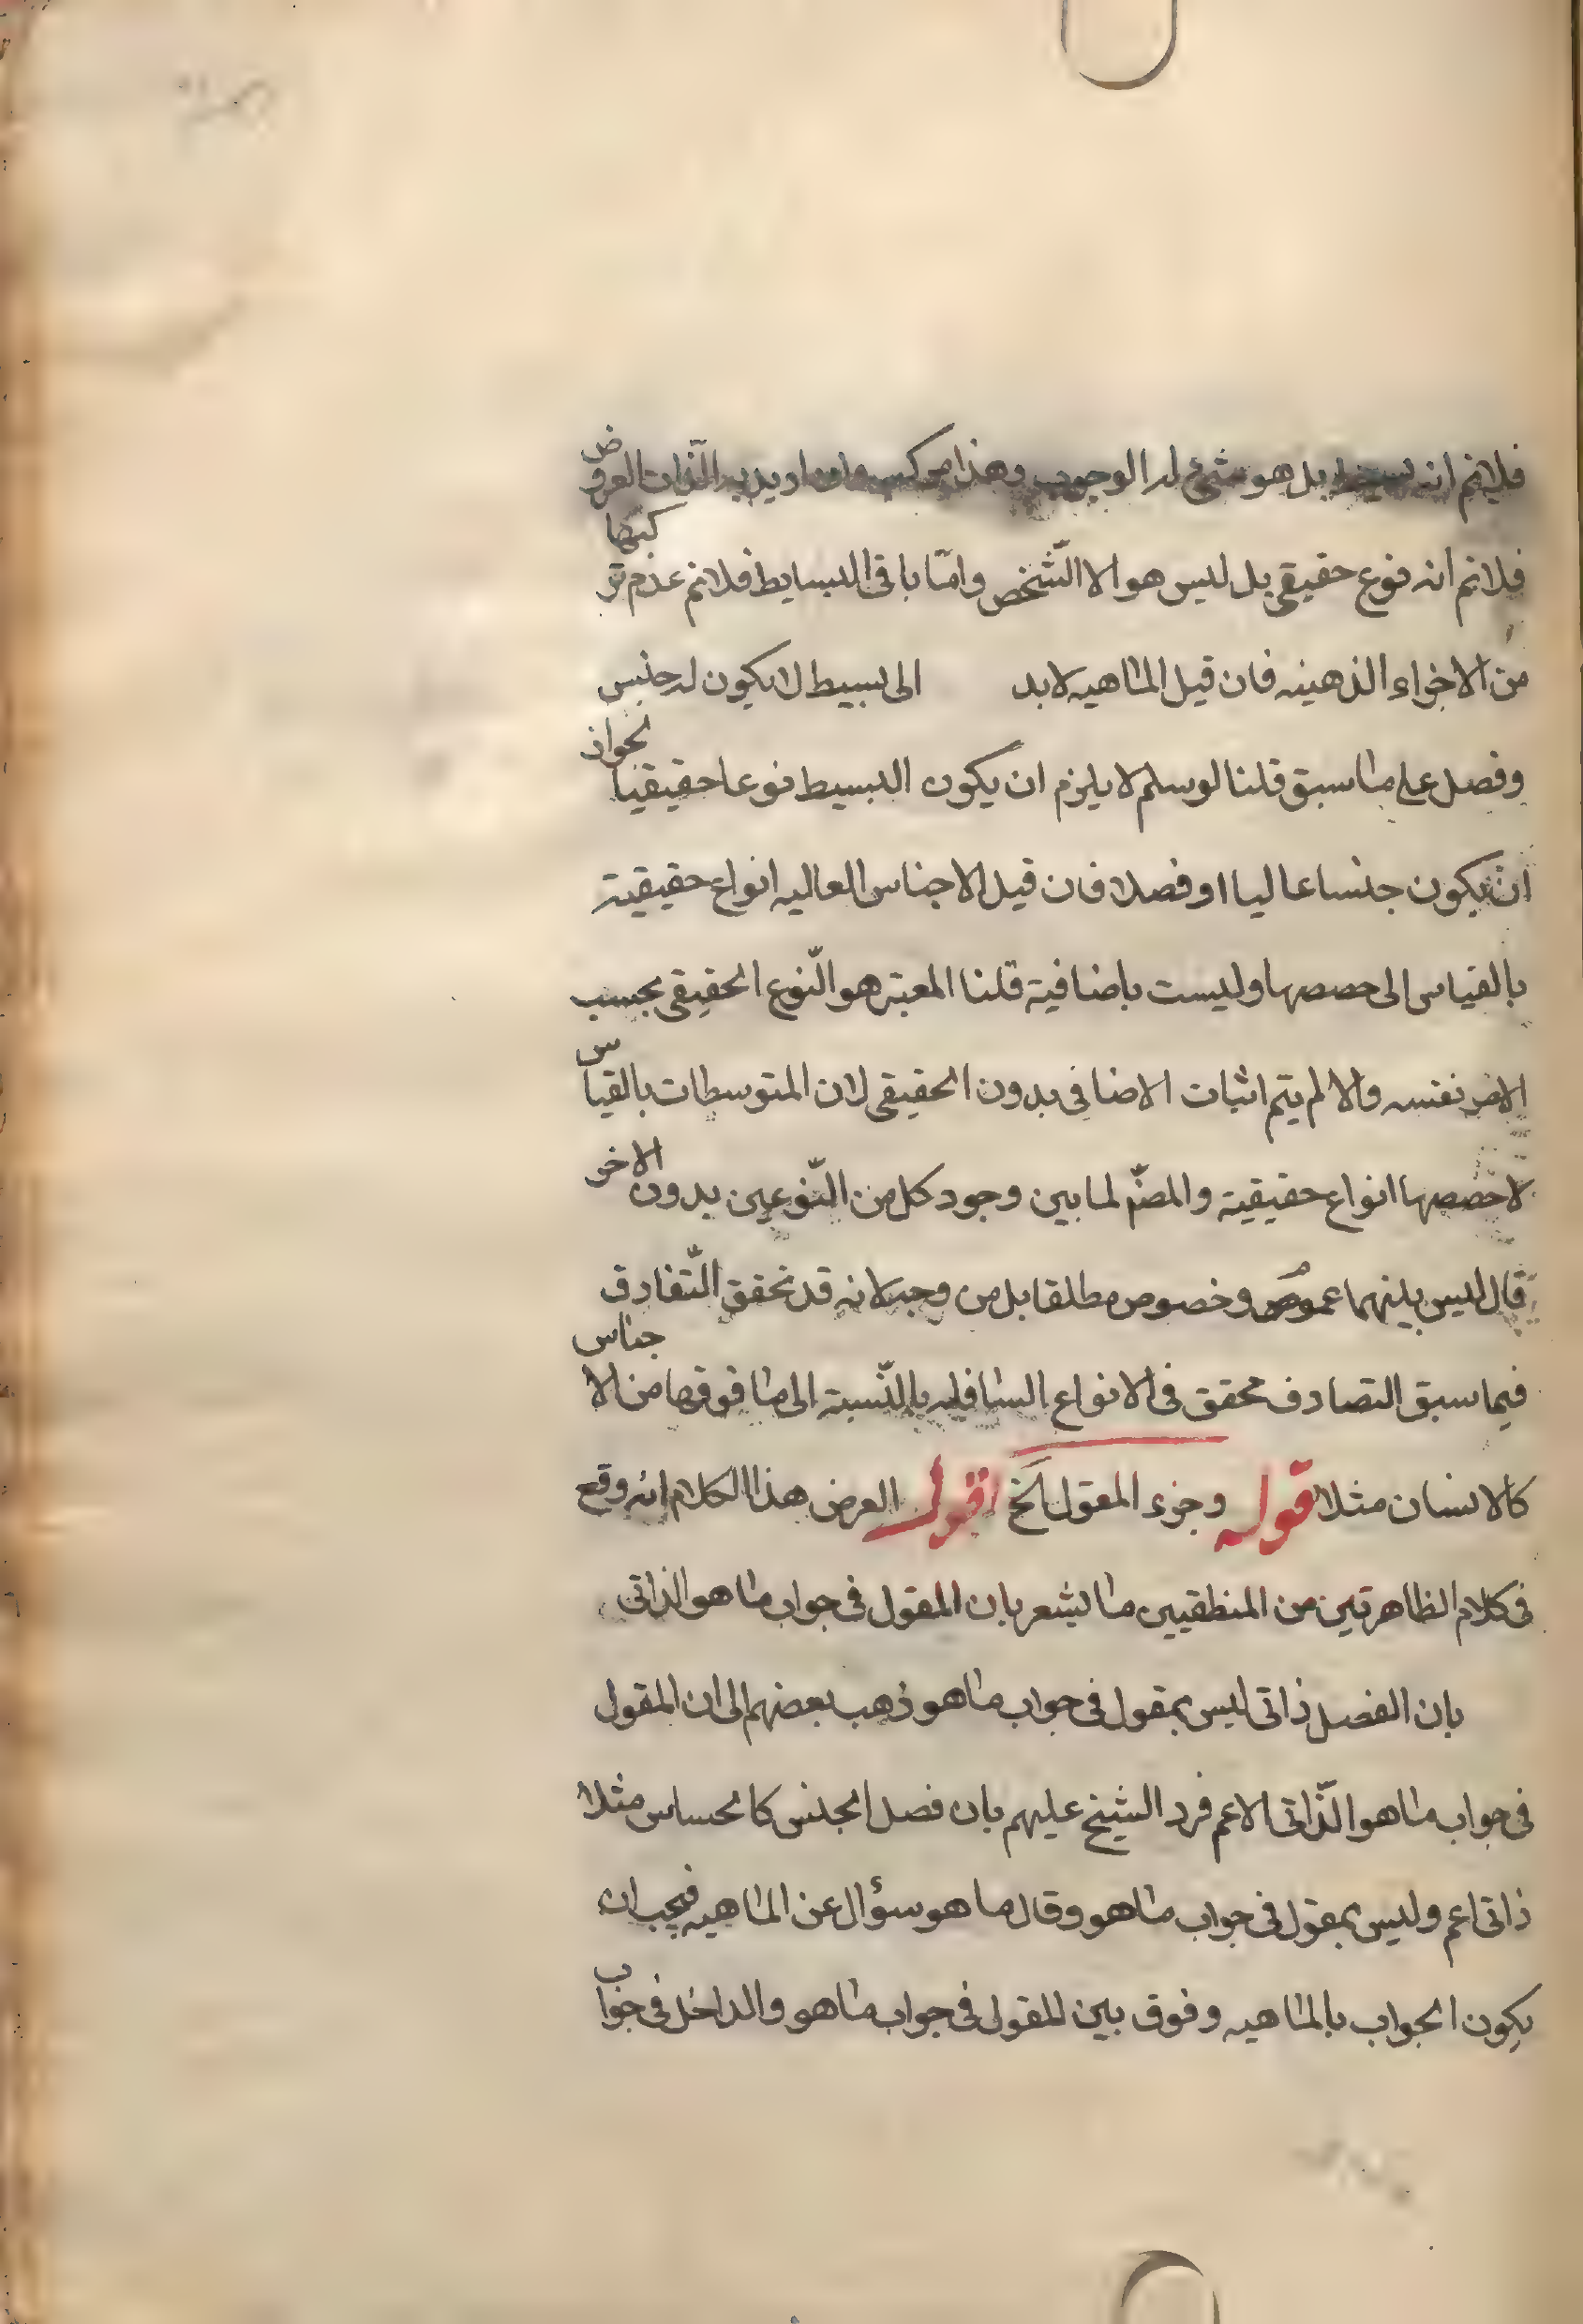 فلانم انه بسيط بل هو شئ له الوجوب وهذا مركب وان اريد به الذات المعروض
فلانم انه نوع حقيقي بل ليس هو الا الشّخص وامّا باقي البسايط فلانم عدم تركبها
من الاجزاء الذهنيه فان قيل الماهيه لابد الى بسيط لا يكون له جنس
وفصل على ما سبق قلنا لو سلم لا يلزم ان يكون البسيط نوعا حقيقيا لجواز
ان يكون جنسا عاليا او فصلا فان قيل الاجناس العاليه انواع حقيقية
بالقياس الى حصصها وليست باضافية قلنا المعتبر هو النّوع الحقيقي بحسب
الامر نفسه والا لم يتم اثبات الاضافي بدون الحقيقي لان المتوسطات بالقياس
لاحصصها انواع حقيقية والمصّ لما بين وجود كل من النّوعين بدون الاخر
قال ليس بينهما عموم وخصوص مطلقا بل من وجه لانه قد تحقق التّفارق
فيما سبق التصادف محقق في الانواع السافله بالنّسبة الى ما فوقها من الاجناس
كالانسان مثلا قوله وجزء المقول الخ اقول العرض هذا الكلام انه وقع
في كلام الظاهريّين من المنطقيين ما يشعر بان المقول في جواب ما هو الذاتي
بان الفصل ذاتي ليس بمقول في جواب ما هو ذهب بعضهم الى ان المقول
في جواب ما هو الذّاتي الاعم فرد الشيخ عليهم بان فصل الجنس كالحساس مثلا
ذاتي اعم وليس بمقول في جواب ما هو وقال ما هو سؤال عن الماهيه فيجب ان
يكون الجواب بالماهيه وفوق بين المقول في جواب ما هو والداخل في جواب